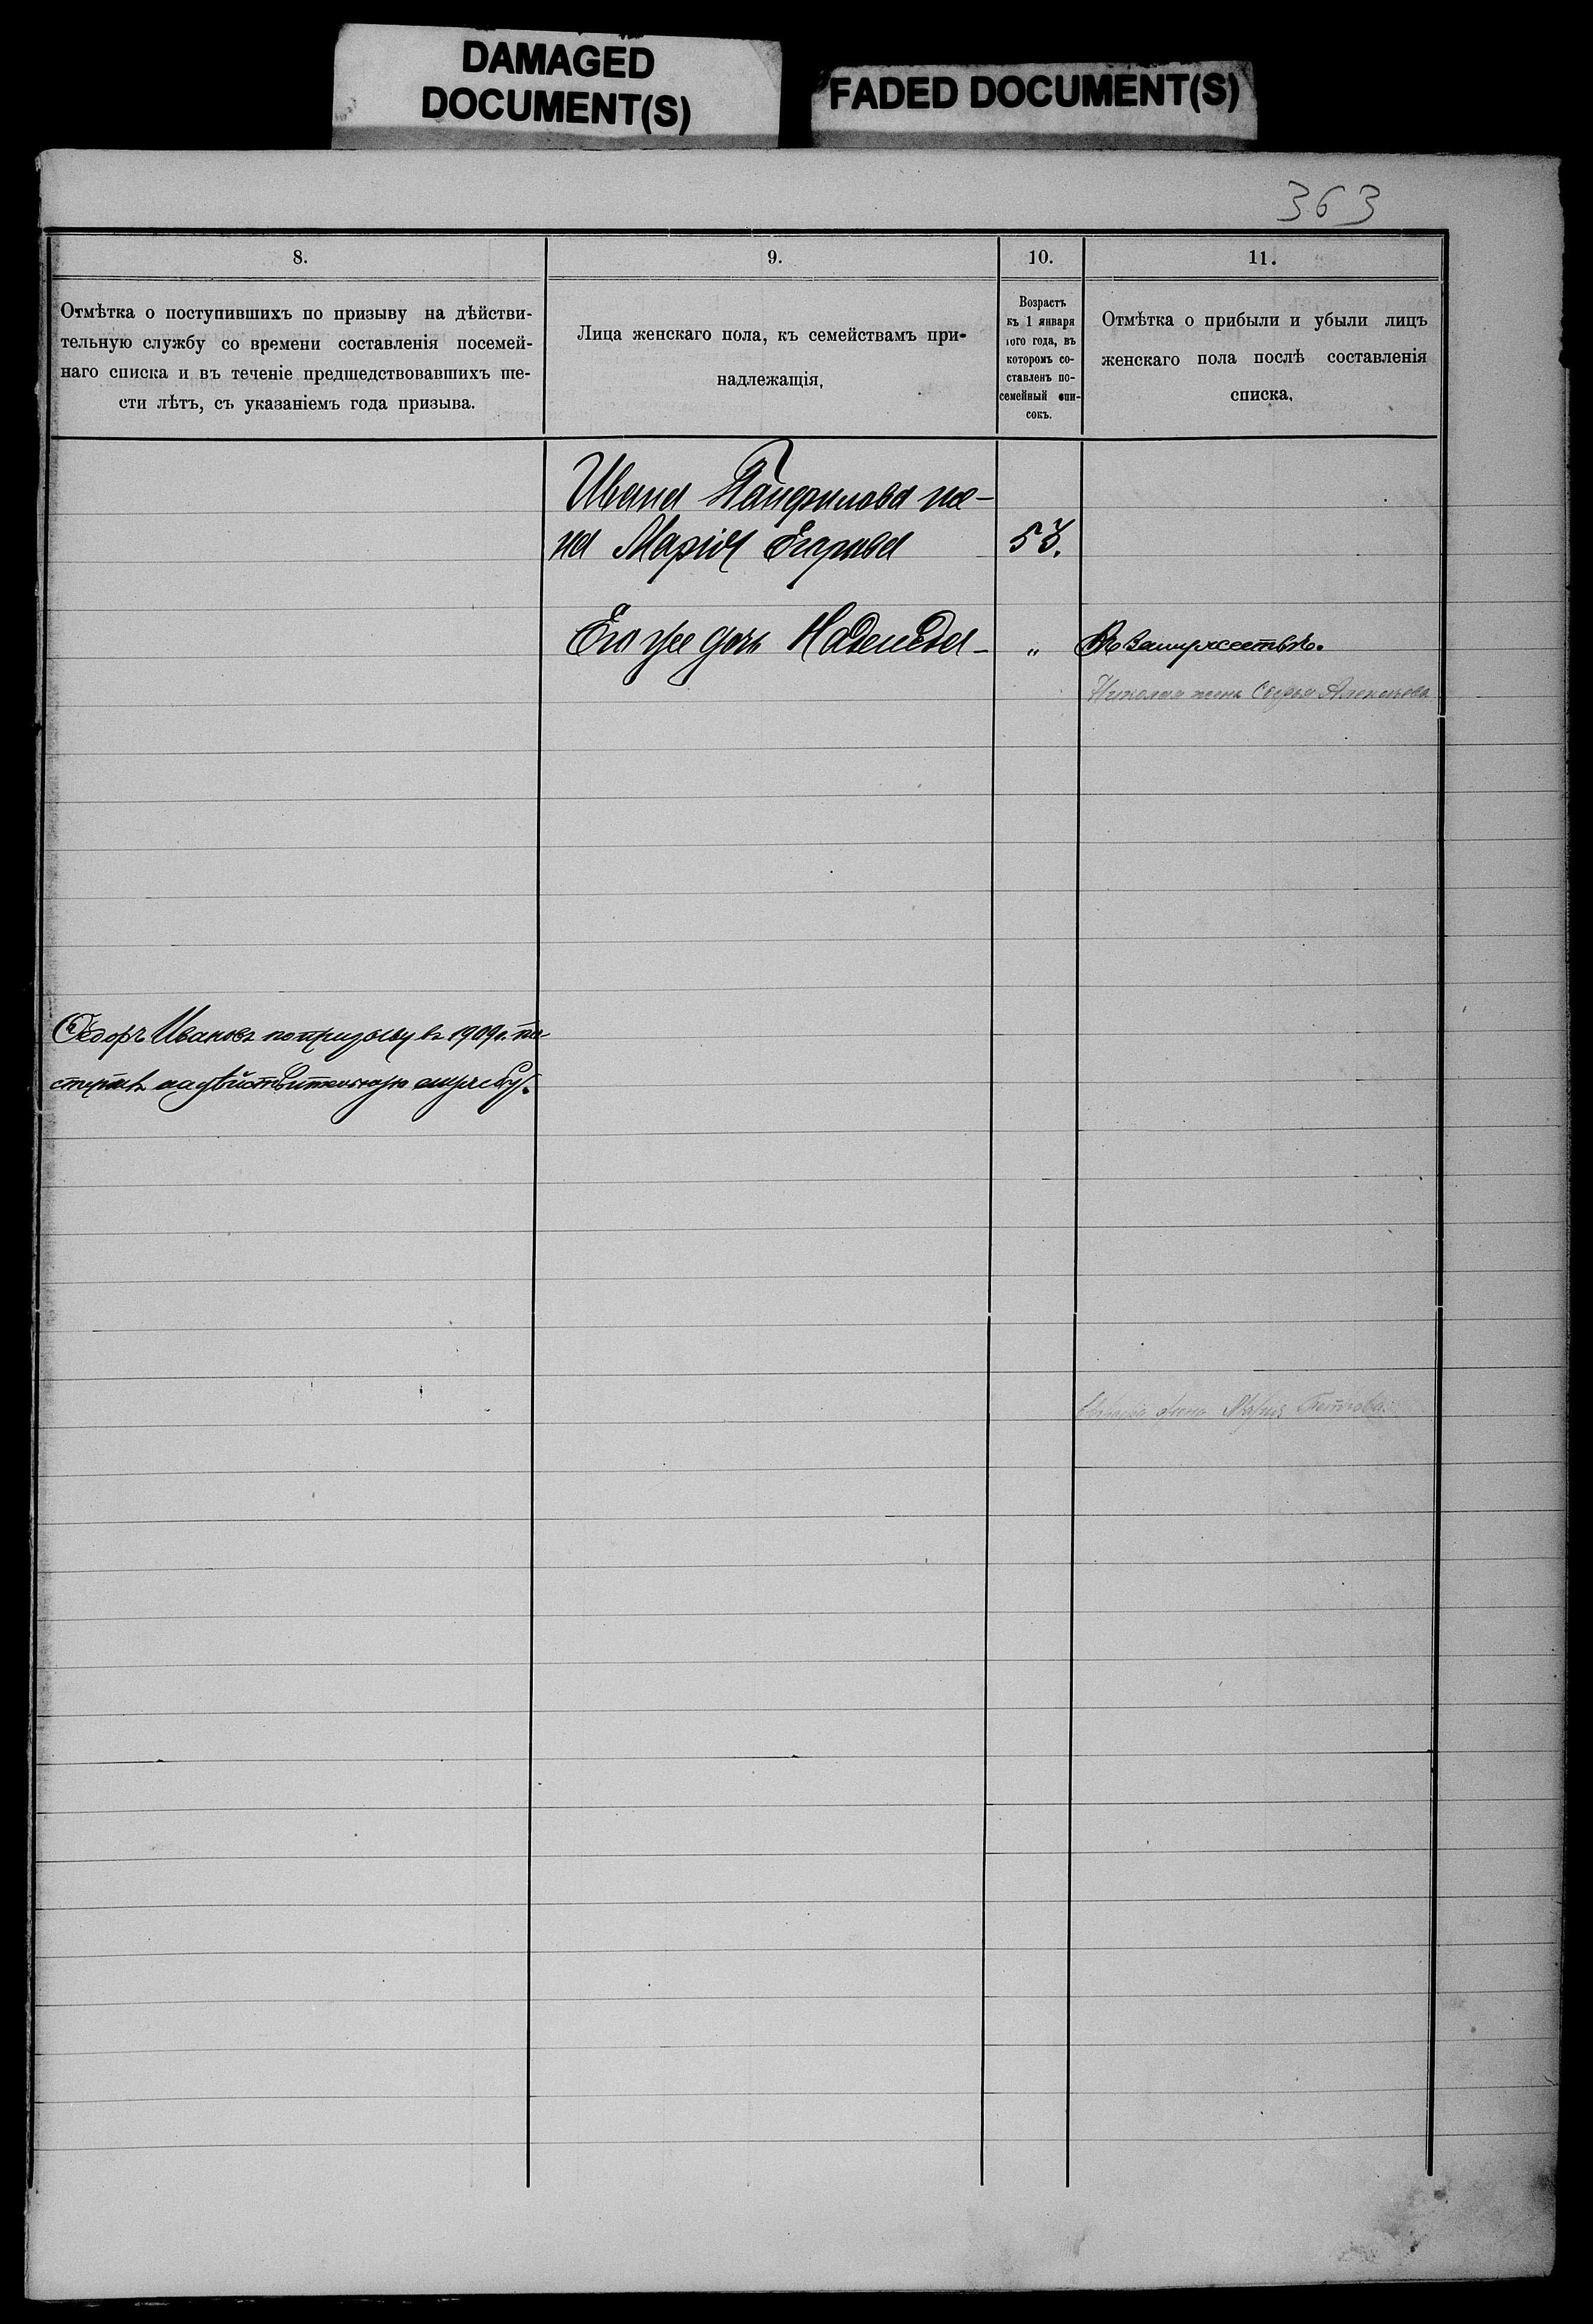 DAMAGED
DOCUMENT(S)
FADED DOCUMENT(S)
363
8.
9.
10.
11.
Отмѣтка о поступившихъ по призыву на дѣйстви-
тельную службу со времени составленія посемей-
наго списка и въ теченіе предшедствовавшихъ ше-
сти лѣтъ, съ указаніемъ года призыва.
Лица женскаго пола, къ семействамъ при-
надлежащія,
Возрастъ
къ 1 января
того года, въ
которомъ со-
ставленъ по-
семейный спи-
сокъ.
Отмѣтка о прибыли и убыли лицъ
женскаго пола послѣ составленія
списка,
Ивана Панфилова же-
на Марія Егорова
53.
Его же дочь Надежда
"
Въ замужествѣ.
Николая жена Софья
Ѳедоръ Ивановъ по призыву въ 1909 г. по-
ступилъ на дѣйствительную службу.
жена Марія